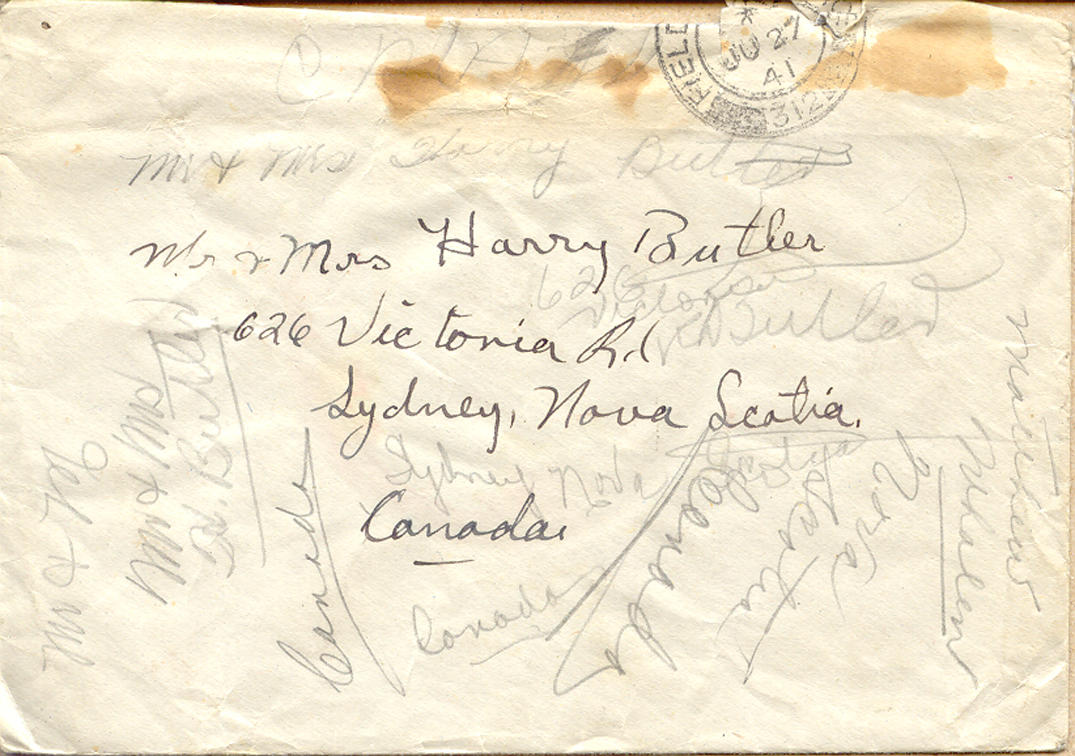 FIELD
JU 27
41
312
Mr & Mrs Harry Butler
Mr & Mrs Harry Butler
626
Victoria
626 Victoria Rd
Butler
Sydney, Nova Scotia.
Sydney Nova Scotia
Canada.
Canada
Mr & Mrs
H. Butler
Mr & H
Canada
Canada
Scotia
Nova